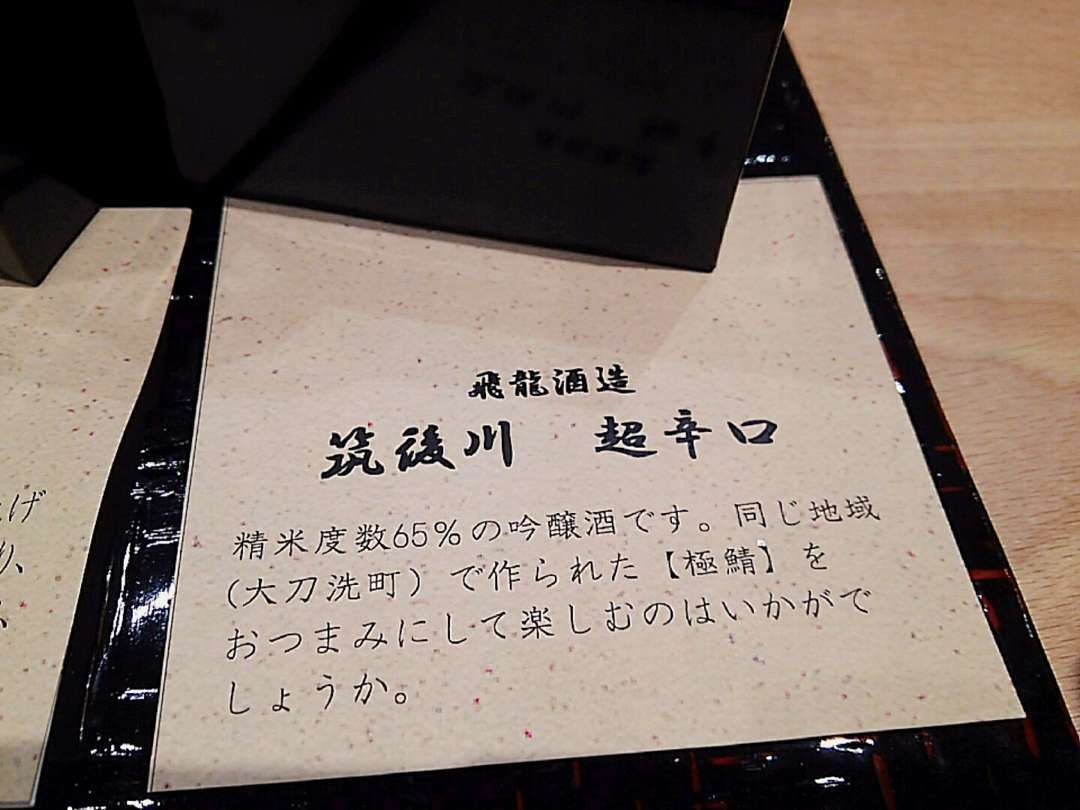 飛龍酒造
筑後川　超辛口
精米度数65%の吟醸酒です。同じ地域
(大刀洗町)で作られた【極鯖】を
おつまみにして楽しむのはいかがで
しょうか。
げ